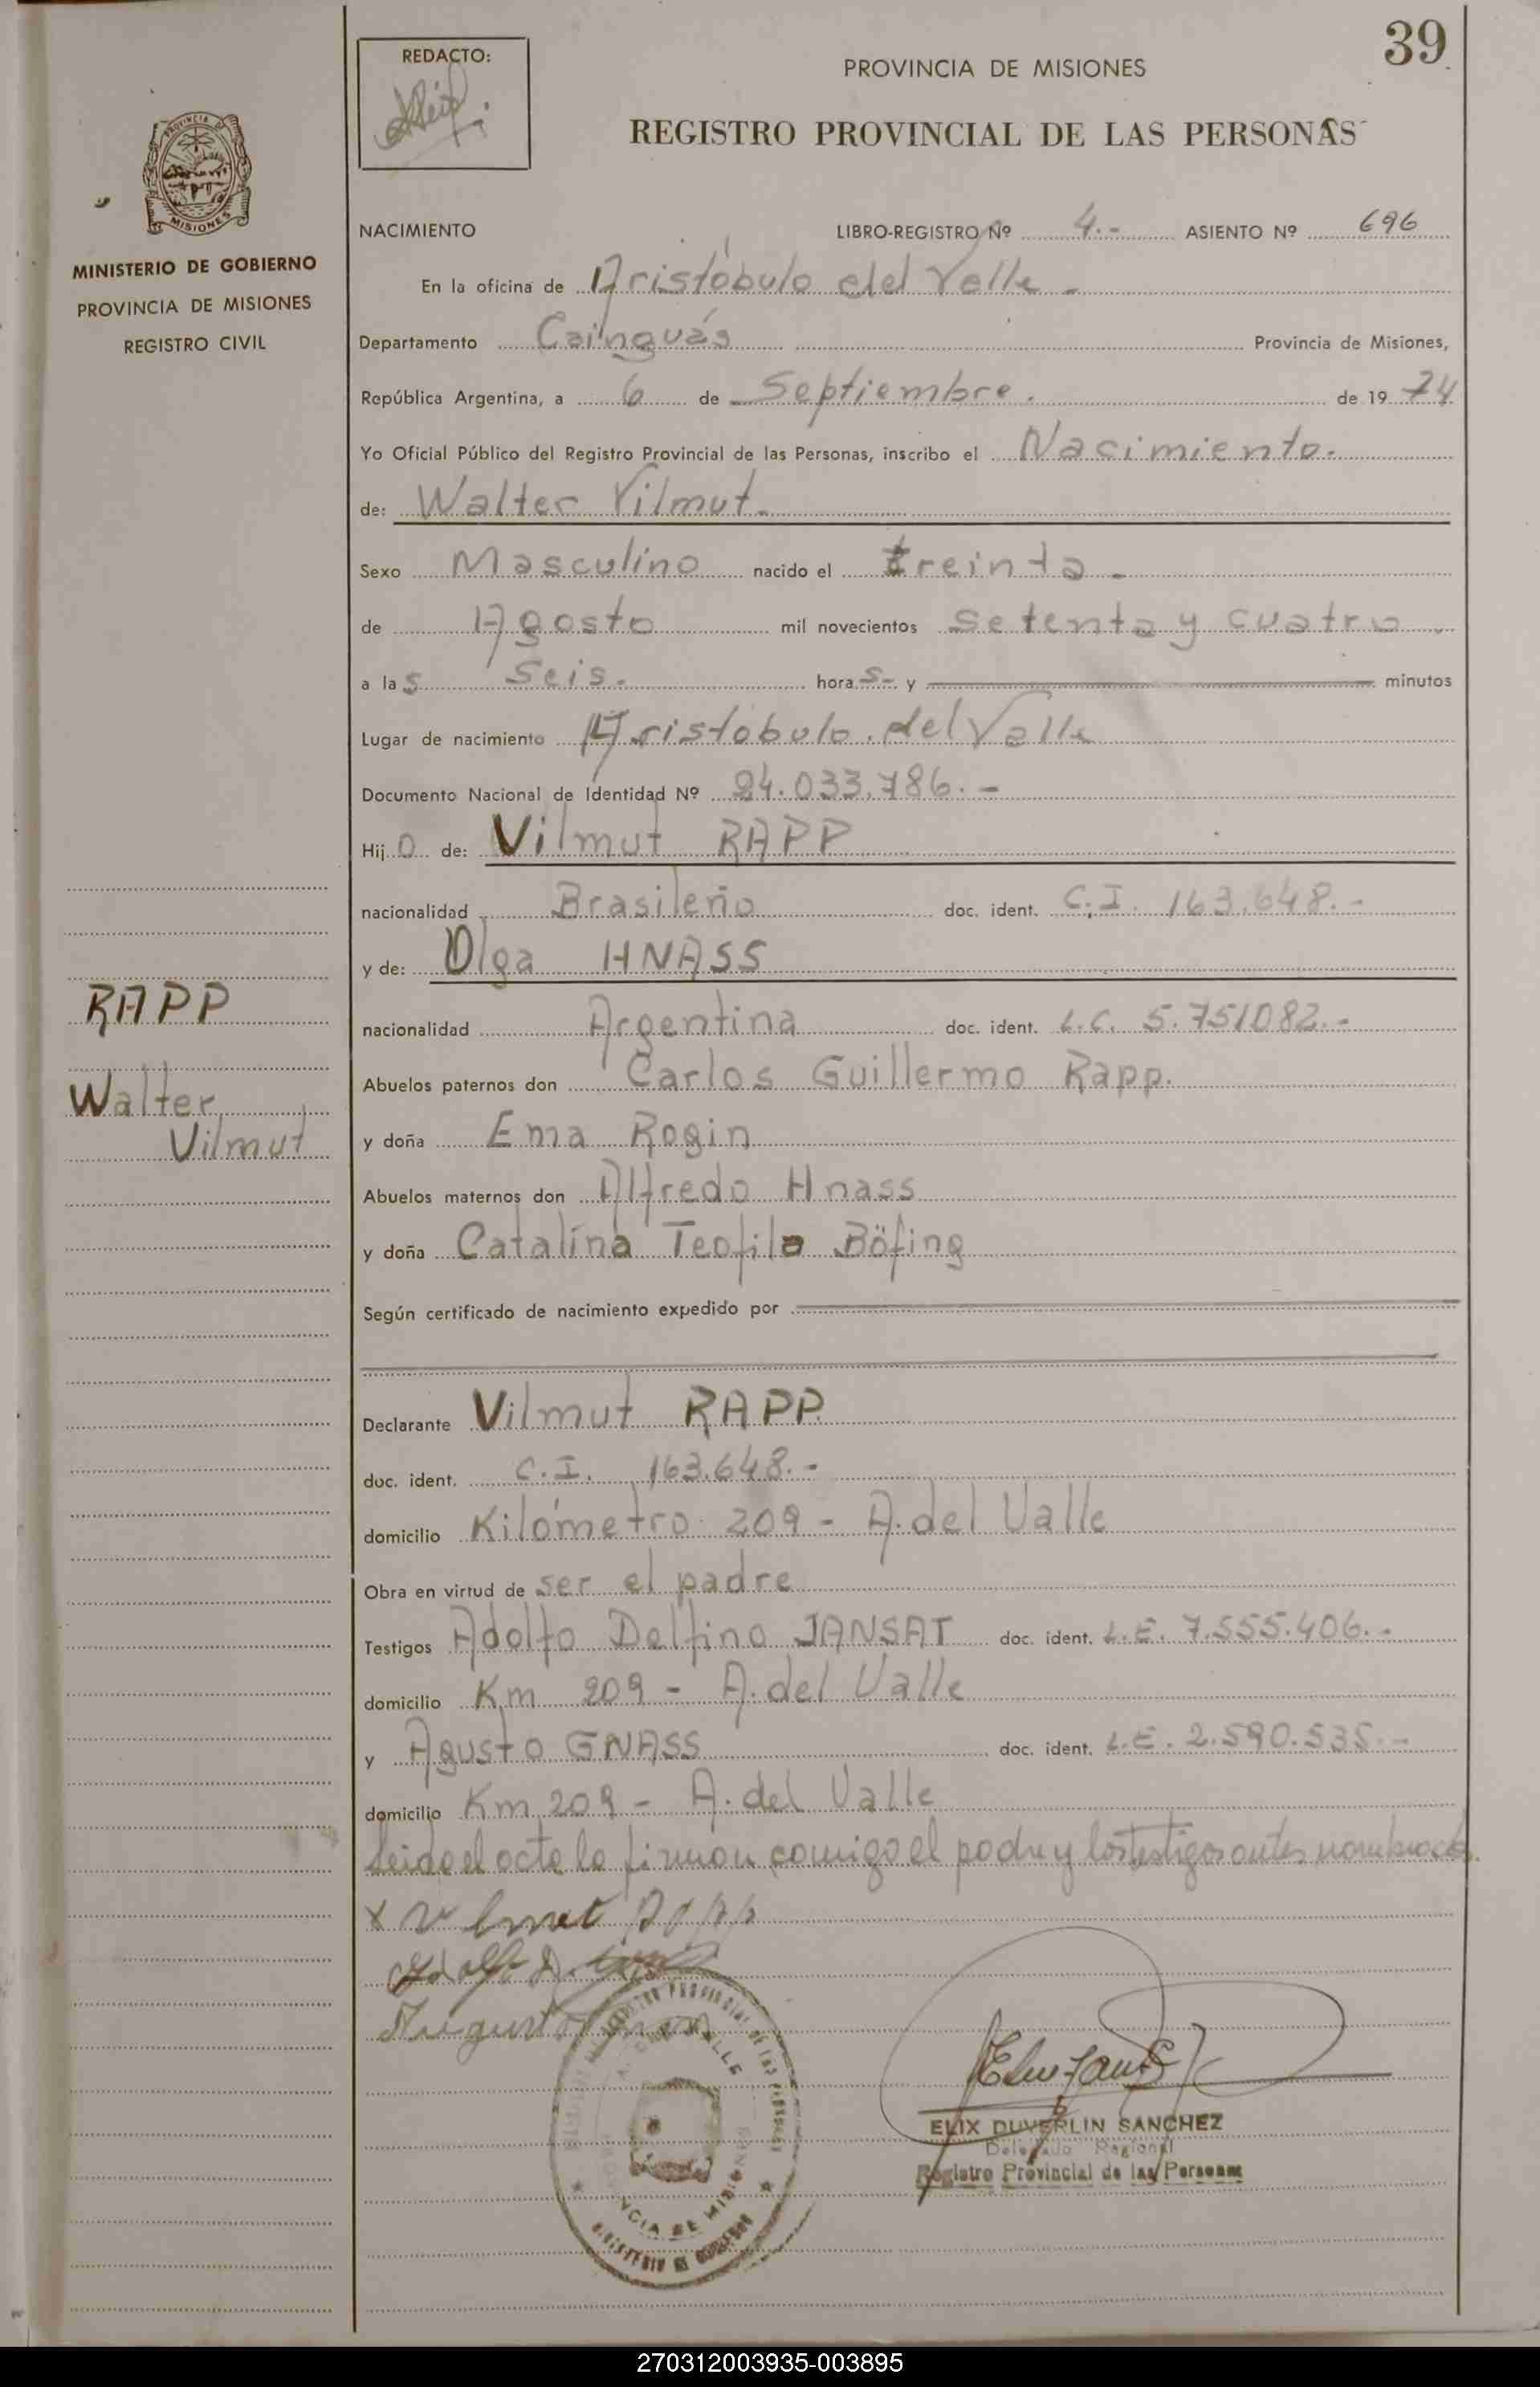 39
REDACTO:
PROVINCIA DE MISIONES
REGISTRO PROVINCIAL DE LAS PERSONAS
PROVINCIA D
MISIONES
MINISTERIO DE GOBIERNO
PROVINCIA DE MISIONES
REGISTRO CIVIL
NACIMIENTO LIBRO-REGISTRO Nº 4.- ASIENTO Nº 696
En la oficina de Aristóbulo del Valle -
Departamento Cainguás Provincia de Misiones,
República Argentina, a 6 de Septiembre. de 19 74
Yo Oficial Público del Registro Provincial de las Personas, inscribo el Nacimiento.
de: Walter Vilmut.
Sexo Masculino nacido el treinta -
de Agosto mil novecientos setenta y cuatro.
a las seis. horas- y minutos
Lugar de nacimiento Aristóbulo del Valle
Documento Nacional de Identidad Nº 24.033.786.-
Hijo de: Vilmut RAPP
nacionalidad Brasileño doc. ident. C.I. 163.648.-
y de: Olga HNASS
nacionalidad Argentina doc. ident. L.C. 5.751082.-
Abuelos paternos don Carlos Guillermo Rapp.
y doña Ema Rogin
Abuelos maternos don Alfredo Hnass
y doña Catalina Teofila Böfing
Según certificado de nacimiento expedido por
RAPP
Walter
Vilmut
Declarante Vilmut RAPP
doc. ident. C.I. 163.648.-
domicilio Kilómetro 209 - A. del Valle
Obra en virtud de ser el padre
Testigos Adolfo Delfino JANSAT doc. ident. L.E. 7.555.406.-
domicilio Km 209 - A. del Valle
y Agusto GNASS doc. ident. L.E. 2.590.535.-
domicilio Km 209 - A. del Valle
Leido el acta la firman conmigo el padre y los testigos antes nombrados.
ELIX DUVERLIN SANCHEZ
Delegado Regional
Registro Provincial de las Personas
270312003935-003895